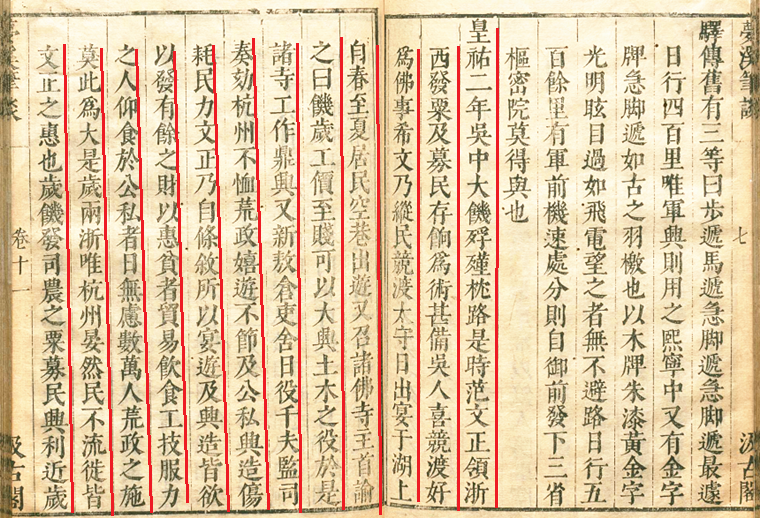 夢溪筆談
七
汲古閣
驛傳舊有三等曰步遞馬遞急脚遞急脚遞最遽
日行四百里唯軍興則用之熙寧中又有金字
牌急脚遞如古之羽檄也以木牌朱漆黃金字
光明眩目過如飛電望之者無不避路日行五
百餘里有軍前機速處分則自御前發下三省
樞密院莫得與也
皇祐二年吳中大饑殍殣枕路是時范文正領浙
西發粟及募民存餉爲術甚備吳人喜競渡好
爲佛事希文乃縱民競渡太守日出宴于湖上
自春至夏居民空巷出遊又召諸佛寺主首諭
之曰饑歲工價至賤可以大興土木之役於是
諸寺工作鼎興又新敖倉吏舍日役千夫監司
奏劾杭州不恤荒政嬉遊不節及公私興造傷
耗民力文正乃自條敘所以宴遊及興造皆欲
以發有餘之財以惠貧者貿易飲食工技服力
之人仰食於公私者日無慮數萬人荒政之施
莫此爲大是歲兩浙唯杭州晏然民不流徙皆
文正之惠也歲饑發司農之粟募民興利近歲
夢溪筆談
卷十一
汲古閣